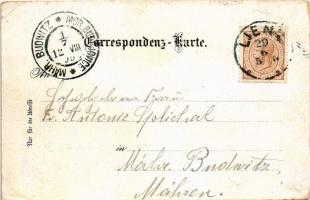 MÄHR. BUDWITZ * MOR. BUDĚJOVICE *
1/7
12 VIII
Correspondenz-Karte.
LIENZ
Nur für die Adresse
Hochgeborene Frau
Fr. Antonie Splichal
in
Mähr. Budwitz
Mähren.